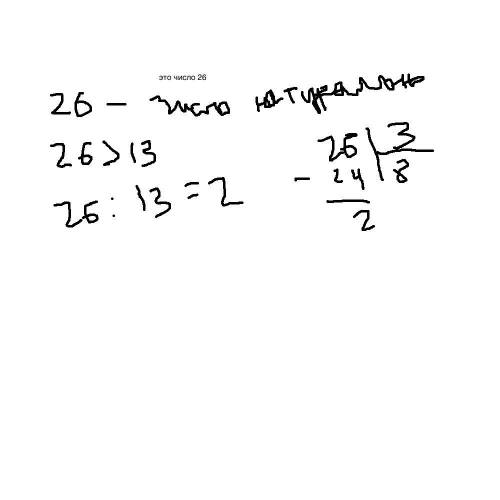 это число 26
26 — число натурально
26 > 13
26 : 13 = 2
26 | 3
- 24 | 8
2